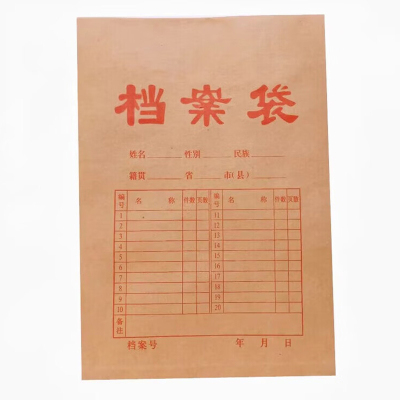 档案袋
姓名______性别______民族______
籍贯______省______市(县)
编号 名 称 件数 页数 编号 名 称 件数 页数
1 11
2 12
3 13
4 14
5 15
6 16
7 17
8 18
9 19
10 20
备注
档案号 年 月 日